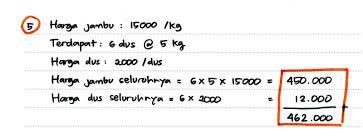 5 Harga jambu : 15000 /kg
Terdapat : 6 dus @ 5 kg
Harga dus : 2000 /dus
Harga jambu seluruhnya = 6 x 5 x 15000 = 450.000
Harga dus seluruhnya = 6 x 2000 = 12.000
462.000